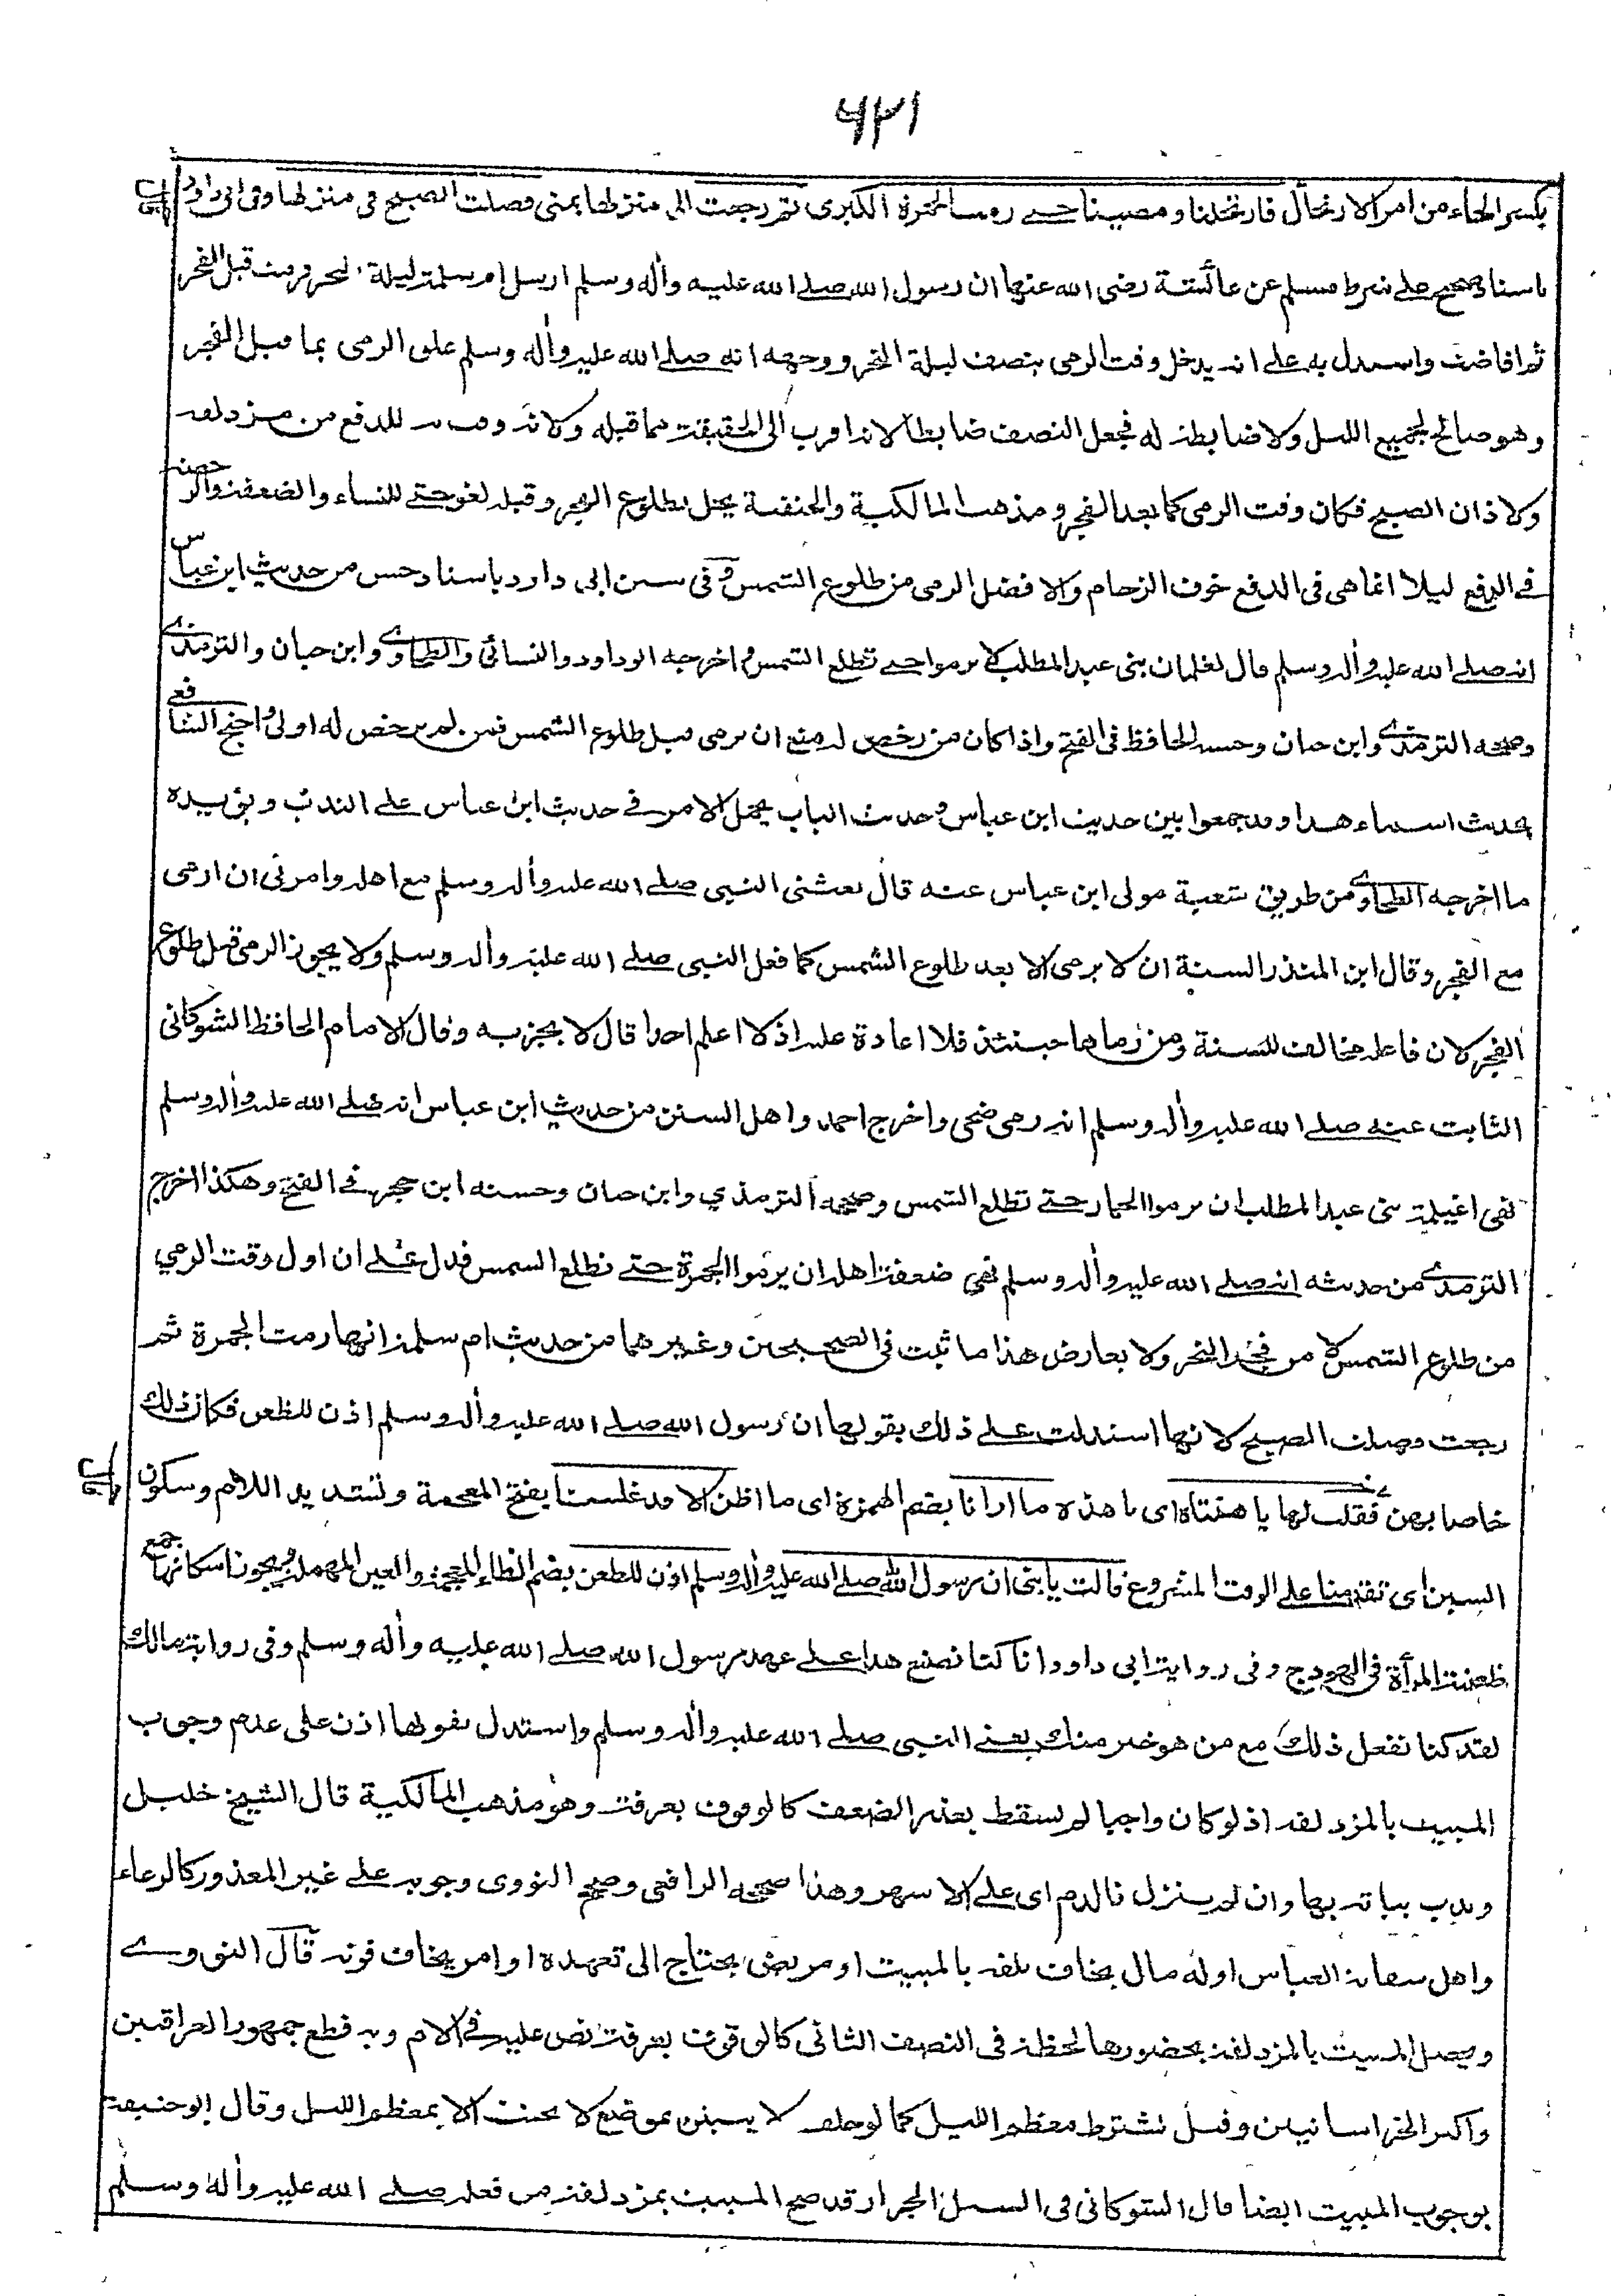 ٦٢١
بكسر الحاء من امر الارتحال فارتحلنا ومضينا حتى رمت الجمرة الكبرى ثم رجعت الى منزلها بمنى فصلت الصبح في منزلها وفي ابي داود
باسناد صحيح على شرط مسلم عن عائشة رضى الله عنها ان رسول الله صلى الله عليه وأله وسلم ارسل ام سلمة ليلة النحر فرمت قبل الفجر
ثم افاضت واستدل به على انه يدخل وقت الرمى بنصف ليلة النحر ووجهه انه صلى الله عليه وأله وسلم علق الرمى بما قبل الفجر
وهو صالح لجميع الليل ولا ضابط له فجعل النصف ضابطا لانه اقرب الى الحقيقة مما قبله ولانه وقت للدفع من مزدلفة
ولاذان الصبح فكان وقت الرمى كما بعد الفجر ومذهب المالكية والحنفية يحل بطلوع الفجر وقبله لغو حتى للنساء والضعفة والرخصة
في الدفع ليلا انما هى في الدفع خوف الزحام والافضل الرمى من طلوع الشمس وفى سنن ابى داود باسناد حسن من حديث ابن عباس
انه صلى الله عليه وأله وسلم قال لغلمان بنى عبد المطلب لا ترموا حتى تطلع الشمس واخرجه ابو داود والنسائى والطحاوى وابن حبان والترمذى
وصححه الترمذى وابن حبان وحسنه الحافظ في الفتح واذا كان من رخص له منع ان يرمى قبل طلوع الشمس فمن لم يرخص له اولى واحتج الشافعى
بحديث اسماء هذا وقد جمعوا بين حديث ابن عباس وحديث الباب بحمل الامر في حديث ابن عباس على الندب ويؤيده
ما اخرجه الطحاوى من طريق شعبة مولى ابن عباس عنه قال بعثنى النبى صلى الله عليه وأله وسلم مع اهله وامرنى ان ارمى
مع الفجر وقال ابن المنذر السنة ان لا يرمى الا بعد طلوع الشمس كما فعل النبى صلى الله عليه وأله وسلم ولا يجوز الرمى قبل طلوع
الفجر لان فاعله مخالف للسنة ومن رماها حينئذ فلا اعادة عليه اذ لا اعلم احدا قال لا يجزيه وقال الامام الحافظ الشوكانى
الثابت عنه صلى الله عليه وأله وسلم انه رمى ضحى واخرج احمد واهل السنن من حديث ابن عباس انه صلى الله عليه وأله وسلم
نهى اغيلمة بنى عبد المطلب ان يرموا الجمار حتى تطلع الشمس وصححه الترمذي وابن حبان وحسنه ابن حجر في الفتح وهكذا اخرج
الترمذى من حديثه انه صلى الله عليه وأله وسلم نهى ضعفة اهله ان يرموا الجمرة حتى تطلع الشمس فدل على ان اول وقت الرمي
من طلوع الشمس لا من فجر النحر ولا يعارض هذا ما ثبت في الصحيحين وغيرهما من حديث ام سلمة انها رمت الجمرة ثم
رجعت وصلت الصبح لانها استدلت على ذلك بقولها ان رسول الله صلى الله عليه وأله وسلم اذن للظعن فكان ذلك
خاصا بهن فقلت لها يا هنتاه اى يا هذه ما ارانا بضم الهمزة اى ما اظن الا قد غلسنا بفتح المعجمة وتشديد اللام وسكون
السين اى تقدمنا على الوقت المشروع قالت يا بنى ان رسول الله صلى الله عليه وأله وسلم اذن للظعن بضم الظاء المعجمة والعين المهملة ويجوز اسكانها جمع
ظعينة المرأة في الهودج وفى رواية ابى داود انا كنا نصنع هذا على عهد رسول الله صلى الله عليه وأله وسلم وفى رواية مالك
لقد كنا نفعل ذلك مع من هو خير منك يعنى النبى صلى الله عليه وأله وسلم واستدل بقولها اذن على عدم وجوب
المبيت بالمزدلفة اذ لو كان واجبا لم يسقط بعذر الضعف كالوقوف بعرفة وهو مذهب المالكية قال الشيخ خليل
وندب بياته بها وان لم ينزل فالدم اى على الاشهر وهذا صححه الرافعى وصحح النووى وجوبه على غير المعذور كالرعاء
واهل سقاية العباس اوله مال يخاف تلفه بالمبيت او مريض يحتاج الى تعهده او امر يخاف فوته قال النووى
ويحصل المبيت بالمزدلفة بحضورها لحظة في النصف الثانى كالوقوف بعرفة نص عليه في الام وبه قطع جمهور العراقيين
واكثر الخراسانيين وقيل يشترط معظم الليل كما لو حلف لا يبيتن بموضع لا يحنث الا بمعظم الليل وقال ابو حنيفة
بوجوب المبيت ايضا قال الشوكانى في السيل الجرار قد صح المبيت بمزدلفة من فعله صلى الله عليه وأله وسلم